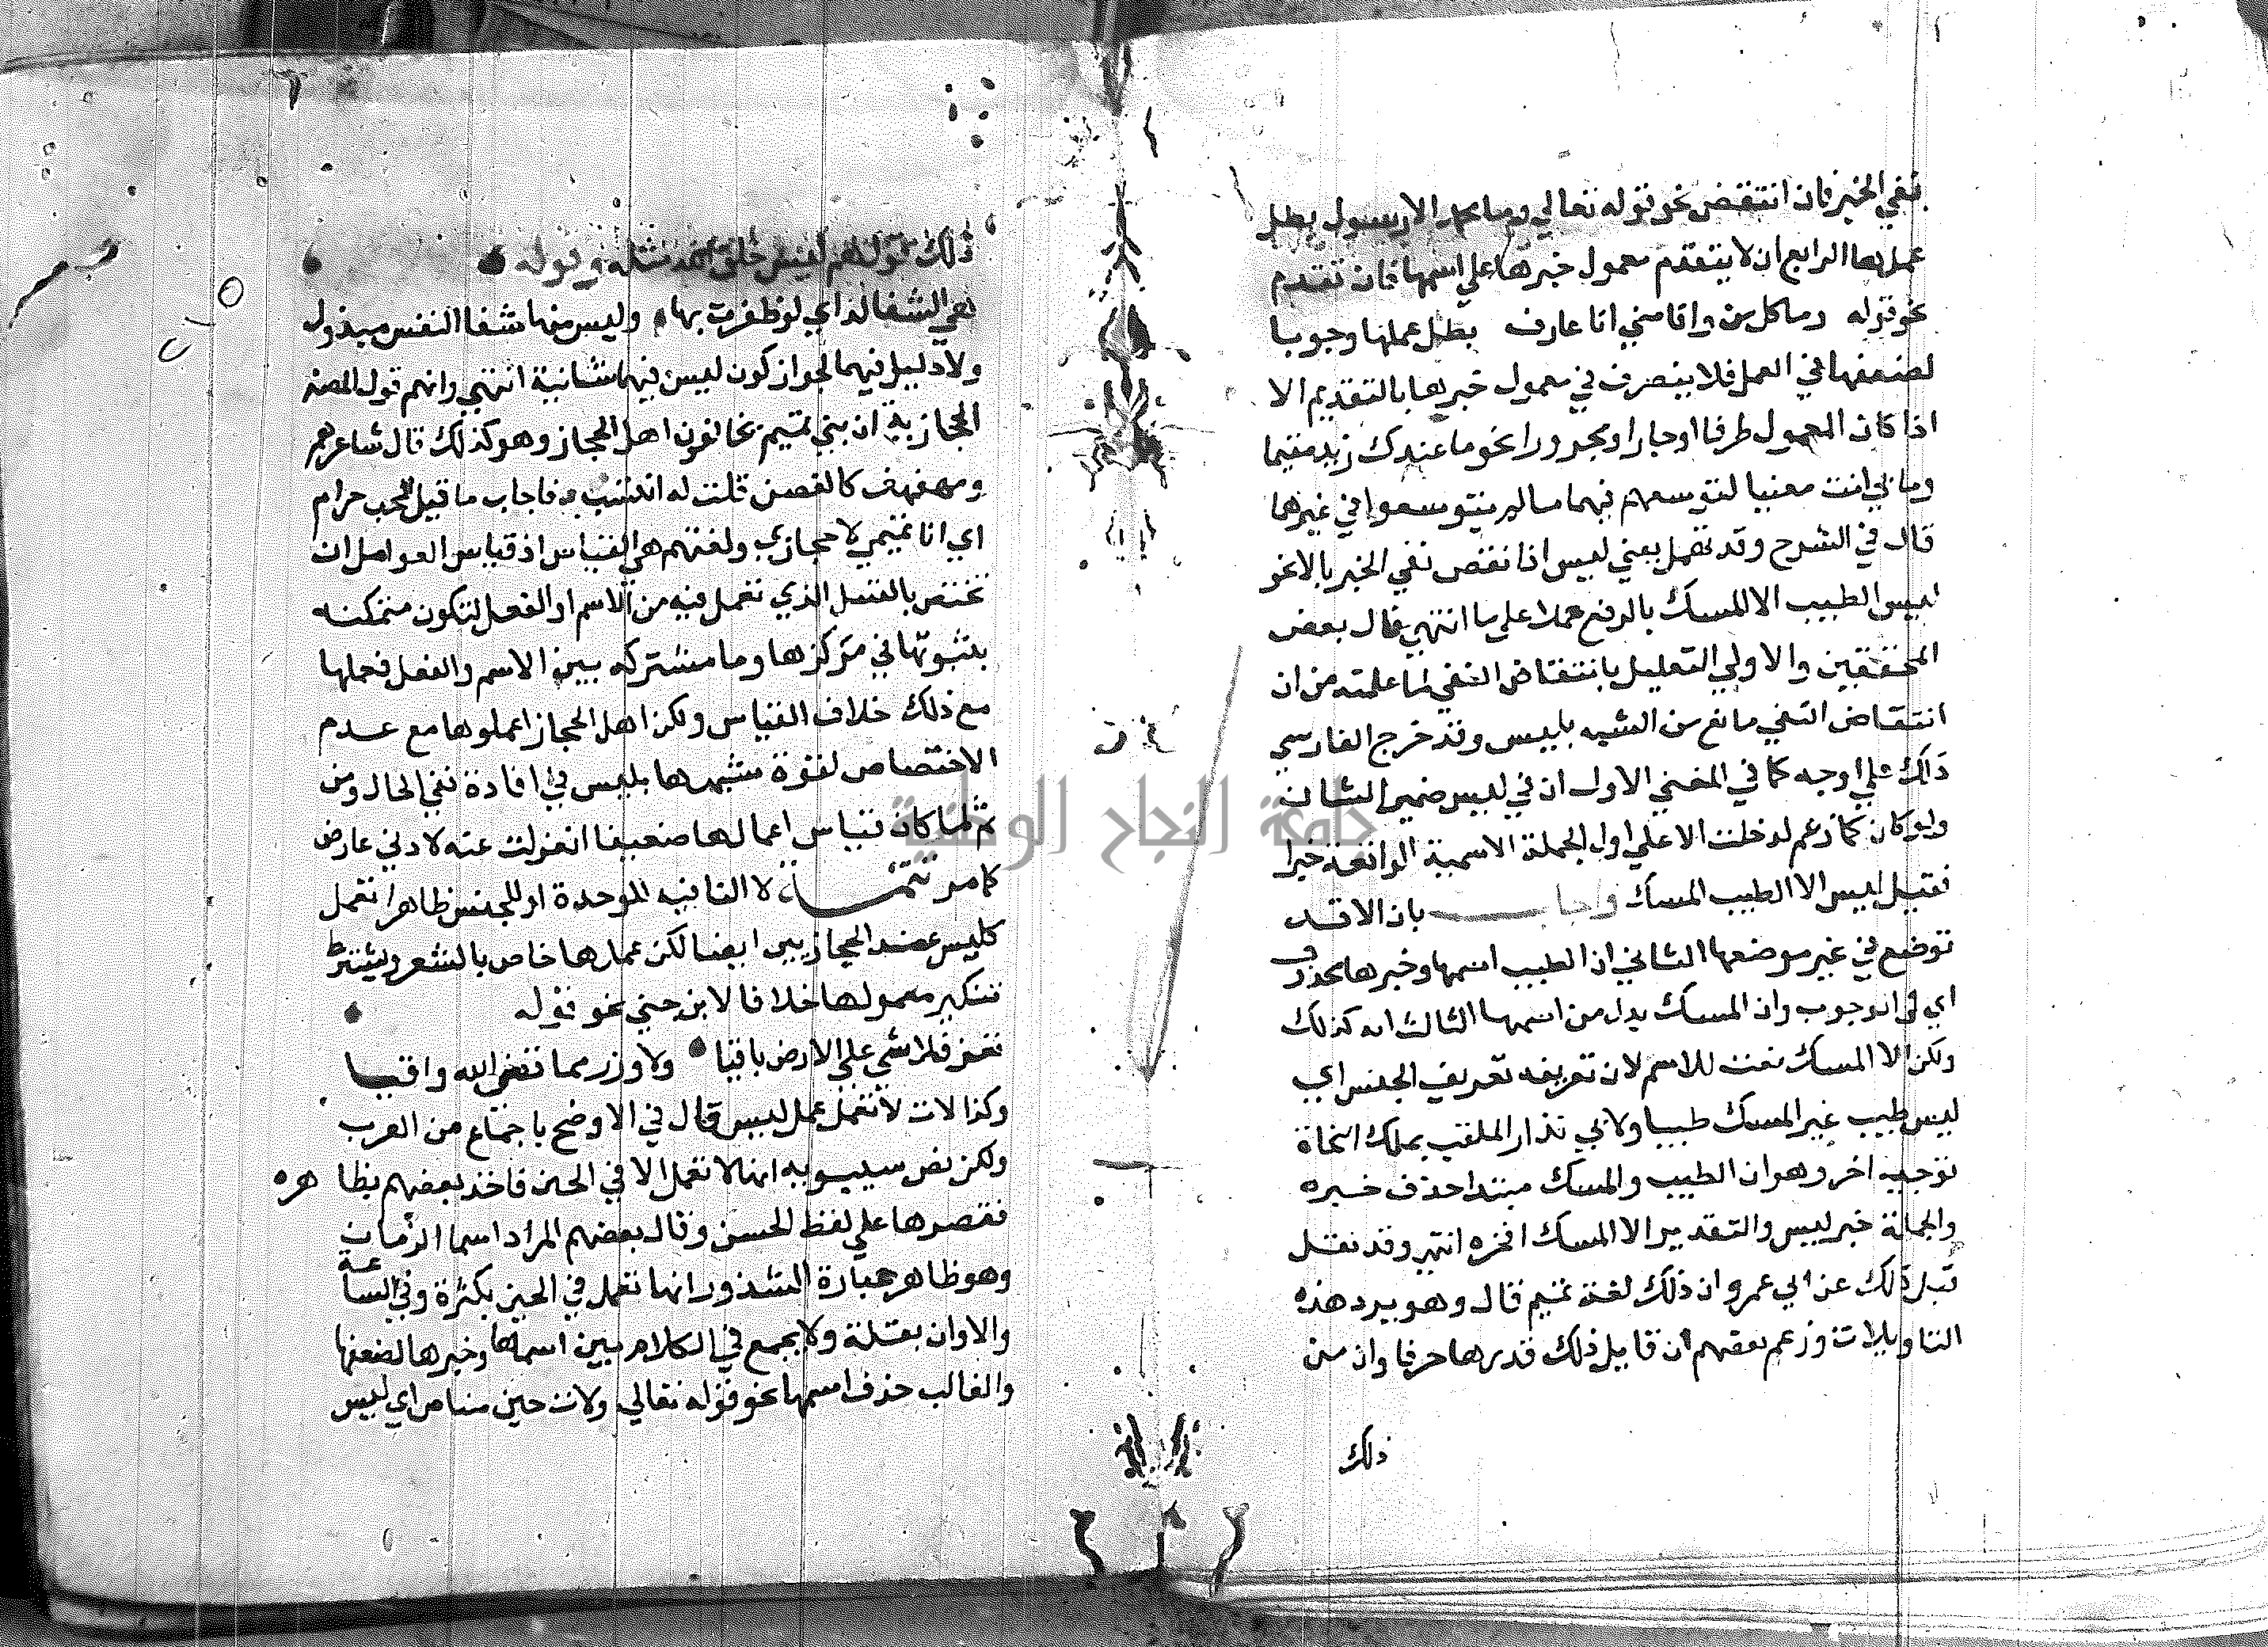 نفي الخبر فان انتقض نحو قوله تعالي وما محمد الا رسول بطل
عملها الرابع ان لا يتقدم معمول خبرها علي اسمها فان تقدم
نحو قوله وما كل من وافا مني انا عارف بطل عملها وجوبا
لضعفها في العمل فلا يتصرف في معمول خبرها بالتقديم الا
اذا كان المعمول ظرفا او جارا ومجرورا نحو ما عندك زيد مقيما
وما بي انت معنيا لتوسعهم فيهما ما لم يتوسعوا في غيرها
قال في الشرح وقد تهمل يعني ليس اذا نقض نفي الخبر بالا نحو
ليس الطيب الا المسك بالرفع حملا علي ما انتهي قال بعض
المحققين والاولي التعليل بانتقاض النفي لما علمته من ان
انتقاض النفي مانع من الشبه بليس وقد خرج الفارسي
ذلك علي اوجه كما في المغني الاول ان في ليس ضمير الشان
ولو كان كما زعم لدخلت الا علي اول الجملة الاسمية الواقعة خبرا
فقيل ليس الا الطيب المسك واجاب بان الا قد
توضع في غير موضعها الثاني ان الطيب اسمها وخبرها محذوف
اي في الوجوب وان المسك بدل من اسمها الثالث انه كذلك
ولكن الا المسك نعت للاسم لان تعريفه تعريف الجنس اي
ليس طيب غير المسك طيبا ولابي نذار الملقب بملك النحاة
توجيه اخر وهو ان الطيب والمسك مبتدا حذف خبره
والجملة خبر ليس والتقدير الا المسك افخره انتهي وقد نقل
قبل ذلك عن ابي عمرو ان ذلك لغة تميم قال وهو يرد هذه
التاويلات وزعم بعضهم ان قايل ذلك قدرها حرفا وان من
ذلك
ذلك قولهم ليس خلق الله مثله وقوله
هي الشفا لداي لو ظفرت بها وليس منها شفا النفس مبذول
ولا دليل فيهما لجواز كون ليس فيهما شانية انتهي وافهم قول المصنف
الحجازية ان بني تميم يخالفون اهل الحجاز وهو كذلك قال شاعرهم
ومهفهف كالغصن قلت له انتسب فاجاب ما قتل المحب حرام
اي انا تميمي لا حجازي ولغتهم هي القياس اذ قياس العوامل ان
تختص بالقبيل الذي تعمل فيه من الاسم او الفعل لتكون متمكنة
بثبوتها في مركزها وما مشتركه بين الاسم والفعل فحملها
مع ذلك خلاف القياس ولكن اهل الحجاز اعملوها مع عدم
الاختصاص لقوة شبهها بليس في افادة نفي الحال ومن
ثم لما كان قياس اعمالها ضعيفا انعزلت عنه لادني عارض
كما مر تتمة لا النافيه للوحدة او للجنس ظاهرا تعمل
كليس عند الحجازيين ايضا لكن عملها خاص بالشعر ويشترط
تنكير معمولها خلافا لابن جني نحو قوله
تعز فلا شي علي الارض باقيا ولا وزر مما قضي الله واقيا
وكذا لات لا تعمل عمل ليس قال في الاوضح باجماع من العرب
ولكن نص سيبويه انها لا تعمل الا في الحين فاخذ بعضهم بظاهره
فقصرها علي لفظ الحسن وقال بعضهم المراد اسما الزمان
وهو ظاهر عبارة الشذور انها تعمل في الحين بكثرة وفي الساعة
والاوان بقلة ولا يجمع في الكلام بين اسمها وخبرها لضعفها
والغالب حذف اسمها نحو قوله تعالي ولات حين مناص اي ليس
جامعة النجاح الوطنية